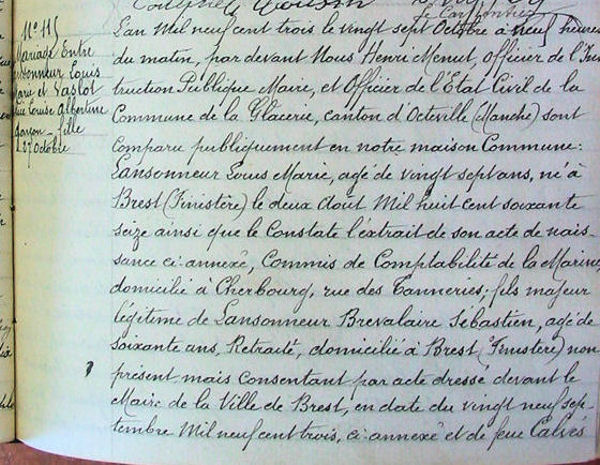 Nº 115
Mariage Entre
Lansonneur Louis
Marie et Vaslot
Louise Albertine
Garçon - fille
27 Octobre
L'an Mil neuf cent trois le vingt sept Octobre à neuf heures
du matin, par devant Nous Henri Menut, Officier de l'Ins
truction Publique Maire, et Officier de l'Etat Civil de la
Commune de la Glacerie, canton d'Octeville (Manche) sont
Comparu publiquement en notre maison Commune:
Lansonneur Louis Marie, agé de vingt sept ans, né à
Brest (Finistère) le deux Aout Mil huit cent soixante
seize ainsi que le Constate l'extrait de son acte de nais-
sance ci-annexé, Commis de Comptabilité de la Marine,
domicilié à Cherbourg, rue des Tanneries; fils majeur
légitime de Lansonneur Brevalaire Sébastien, agé de
soixante ans, Retraité, domicilié à Brest (Finistère) non
présent mais consentant par acte dressé devant le
Maire de la Ville de Brest, en date du vingt neuf sep-
tembre Mil neuf cent trois, ci-annexé et de feue Calvès